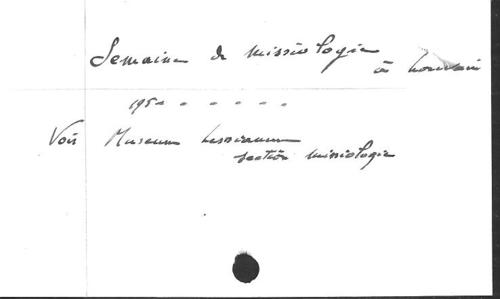 Semaine de missiologie
à Louvain
195- - - - - - -
Voir Museum Lessianum
section missiologie